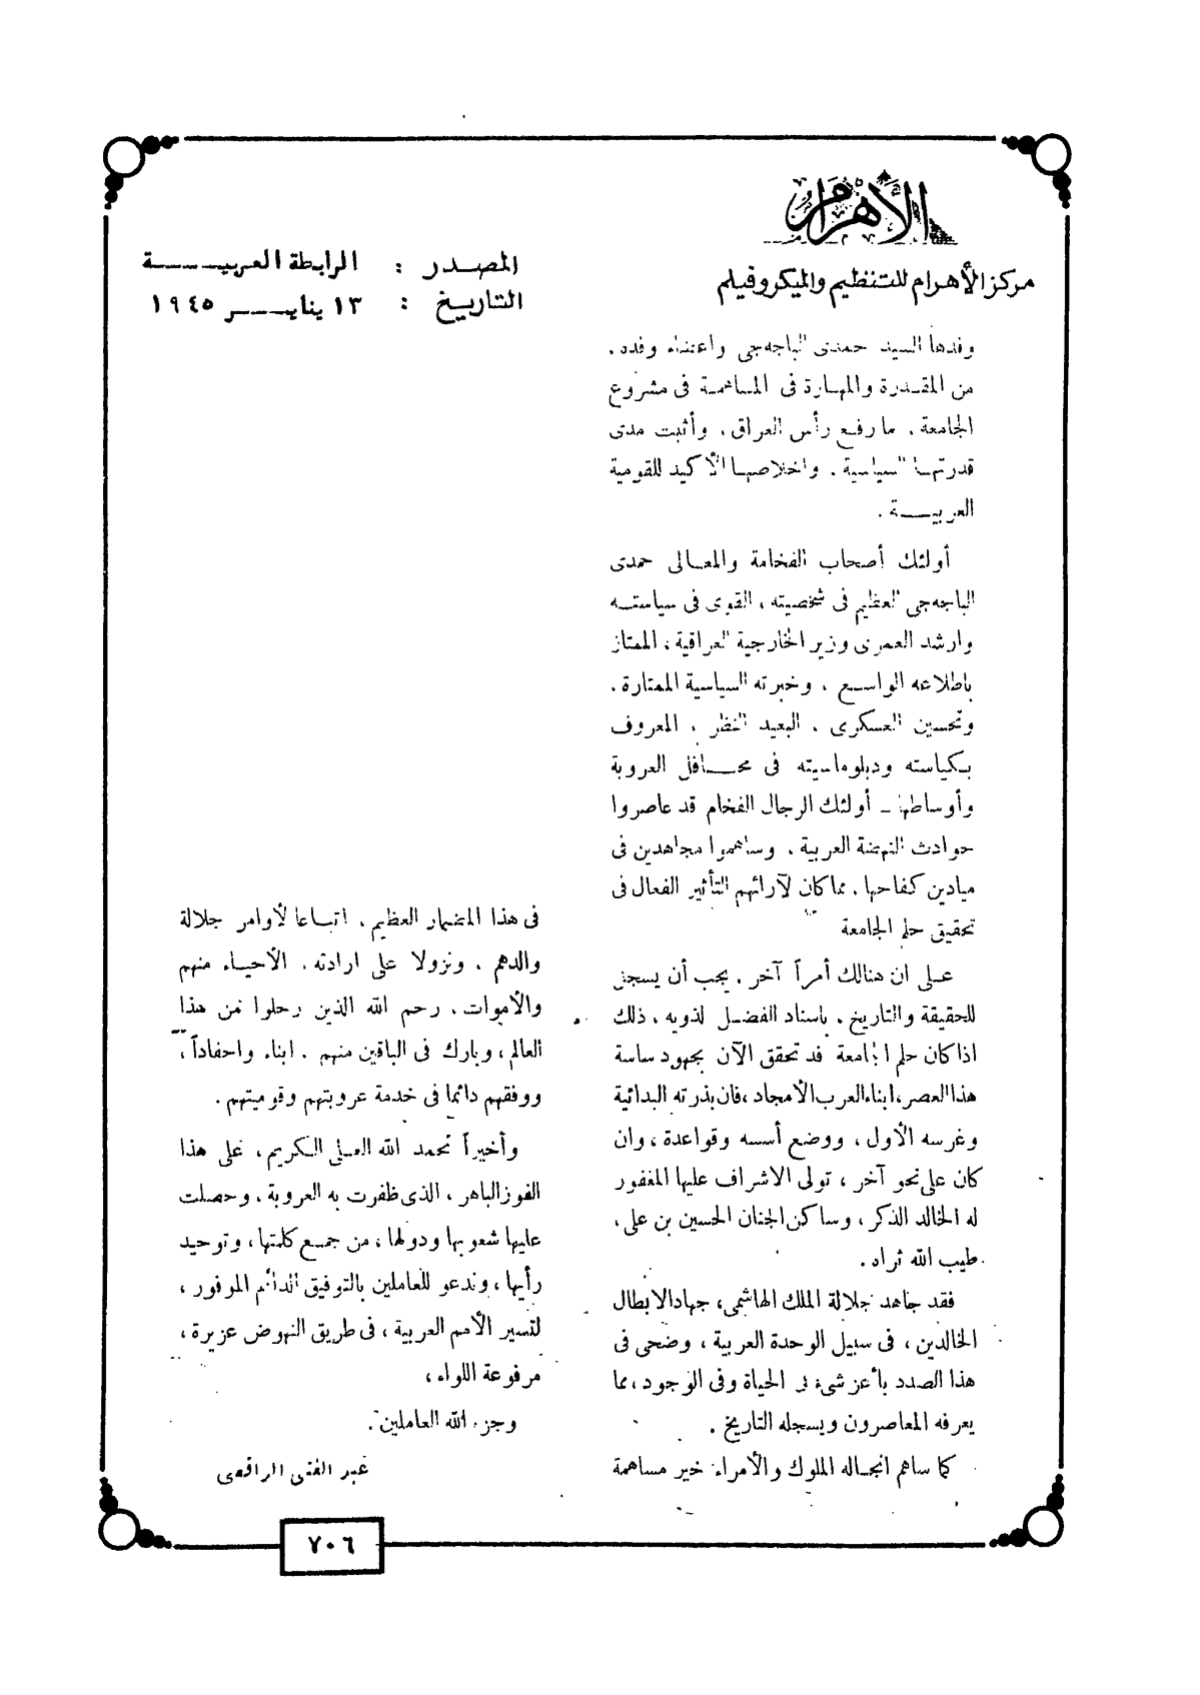 الأهرام
مركز الأهرام للتنظيم والميكروفيلم
المصدر : الرابطة العربية
التاريخ : ١٣ يناير ١٩٤٥
وفدها السيد حمدى الباجه جى واعضاء وفده ،
من المقدرة والمهارة فى المساهمة فى مشروع
الجامعة ، ما رفع رأس العراق ، وأثبت مدى
قدرتها السياسية ، واخلاصها الأكيد للقومية
العربية .
أولئك أصحاب الفخامة والمعالى حمدى
الباجه جى العظيم فى شخصيته ، القوى فى سياسته
وارشد العمرى وزير الخارجية العراقية ، الممتاز
باطلاعه الواسع ، وخبرته السياسية الممتازة ،
وتحسين العسكرى ، البعيد النظر ، المعروف
بكياسته ودبلوماسيته فى محافل العروبة
وأوساطها ــ أولئك الرجال الفخام قد عاصروا
حوادث النهضة العربية ، وساهموا مجاهدين فى
ميادين كفاحها ، مما كان لآرائهم التأثير الفعال فى
تحقيق حلم الجامعة
على ان هنالك أمراً آخر ، يجب أن يسجل
للحقيقة والتاريخ ، باسناد الفضل لذويه ، ذلك
اذا كان حلم الجامعة قد تحقق الآن بجهود ساسة
هذا العصر ، ابناء العرب الأمجاد ، فان بذرته البدائية
وغرسه الأول ، ووضع أسسه وقواعدة ، وان
كان على نحو آخر ، تولى الاشراف عليها المغفور
له الخالد الذكر ، وساكن الجنان الحسين بن على ،
طيب الله ثراه .
فقد جاهد جلالة الملك الهاشمى ، جهاد الابطال
الخالدين ، فى سبيل الوحدة العربية ، وضحى فى
هذا الصدد بأعز شىء فى الحياة وفى الوجود ، مما
يعرفه المعاصرون ويسجله التاريخ .
كما ساهم انجاله الملوك والأمراء خير مساهمة
فى هذا المضمار العظيم ، اتباعا لأوامر جلالة
والدهم ، ونزولا على ارادته ، الأحياء منهم
والأموات ، رحم الله الذين رحلوا من هذا
العالم ، وبارك فى الباقين منهم ، ابناء واحفاداً ،
ووفقهم دائما فى خدمة عروبتهم وقوميتهم .
وأخيراً نحمد الله العلى الكريم ، على هذا
الفوز الباهر ، الذى ظفرت به العروبة ، وحصلت
عليها شعوبها ودولها ، من جمع كلمتها ، وتوحيد
رأيها ، وندعو للعاملين بالتوفيق الدائم الموفور ،
لتسير الأمم العربية ، فى طريق النهوض عزيزة ،
مرفوعة اللواء ،
وجزى الله العاملين .
عبد الغنى الرافعى
٧٠٦